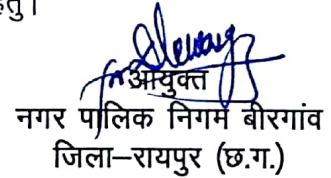 हेतु।
आयुक्त
नगर पालिक निगम बीरगांव
जिला–रायपुर (छ.ग.)